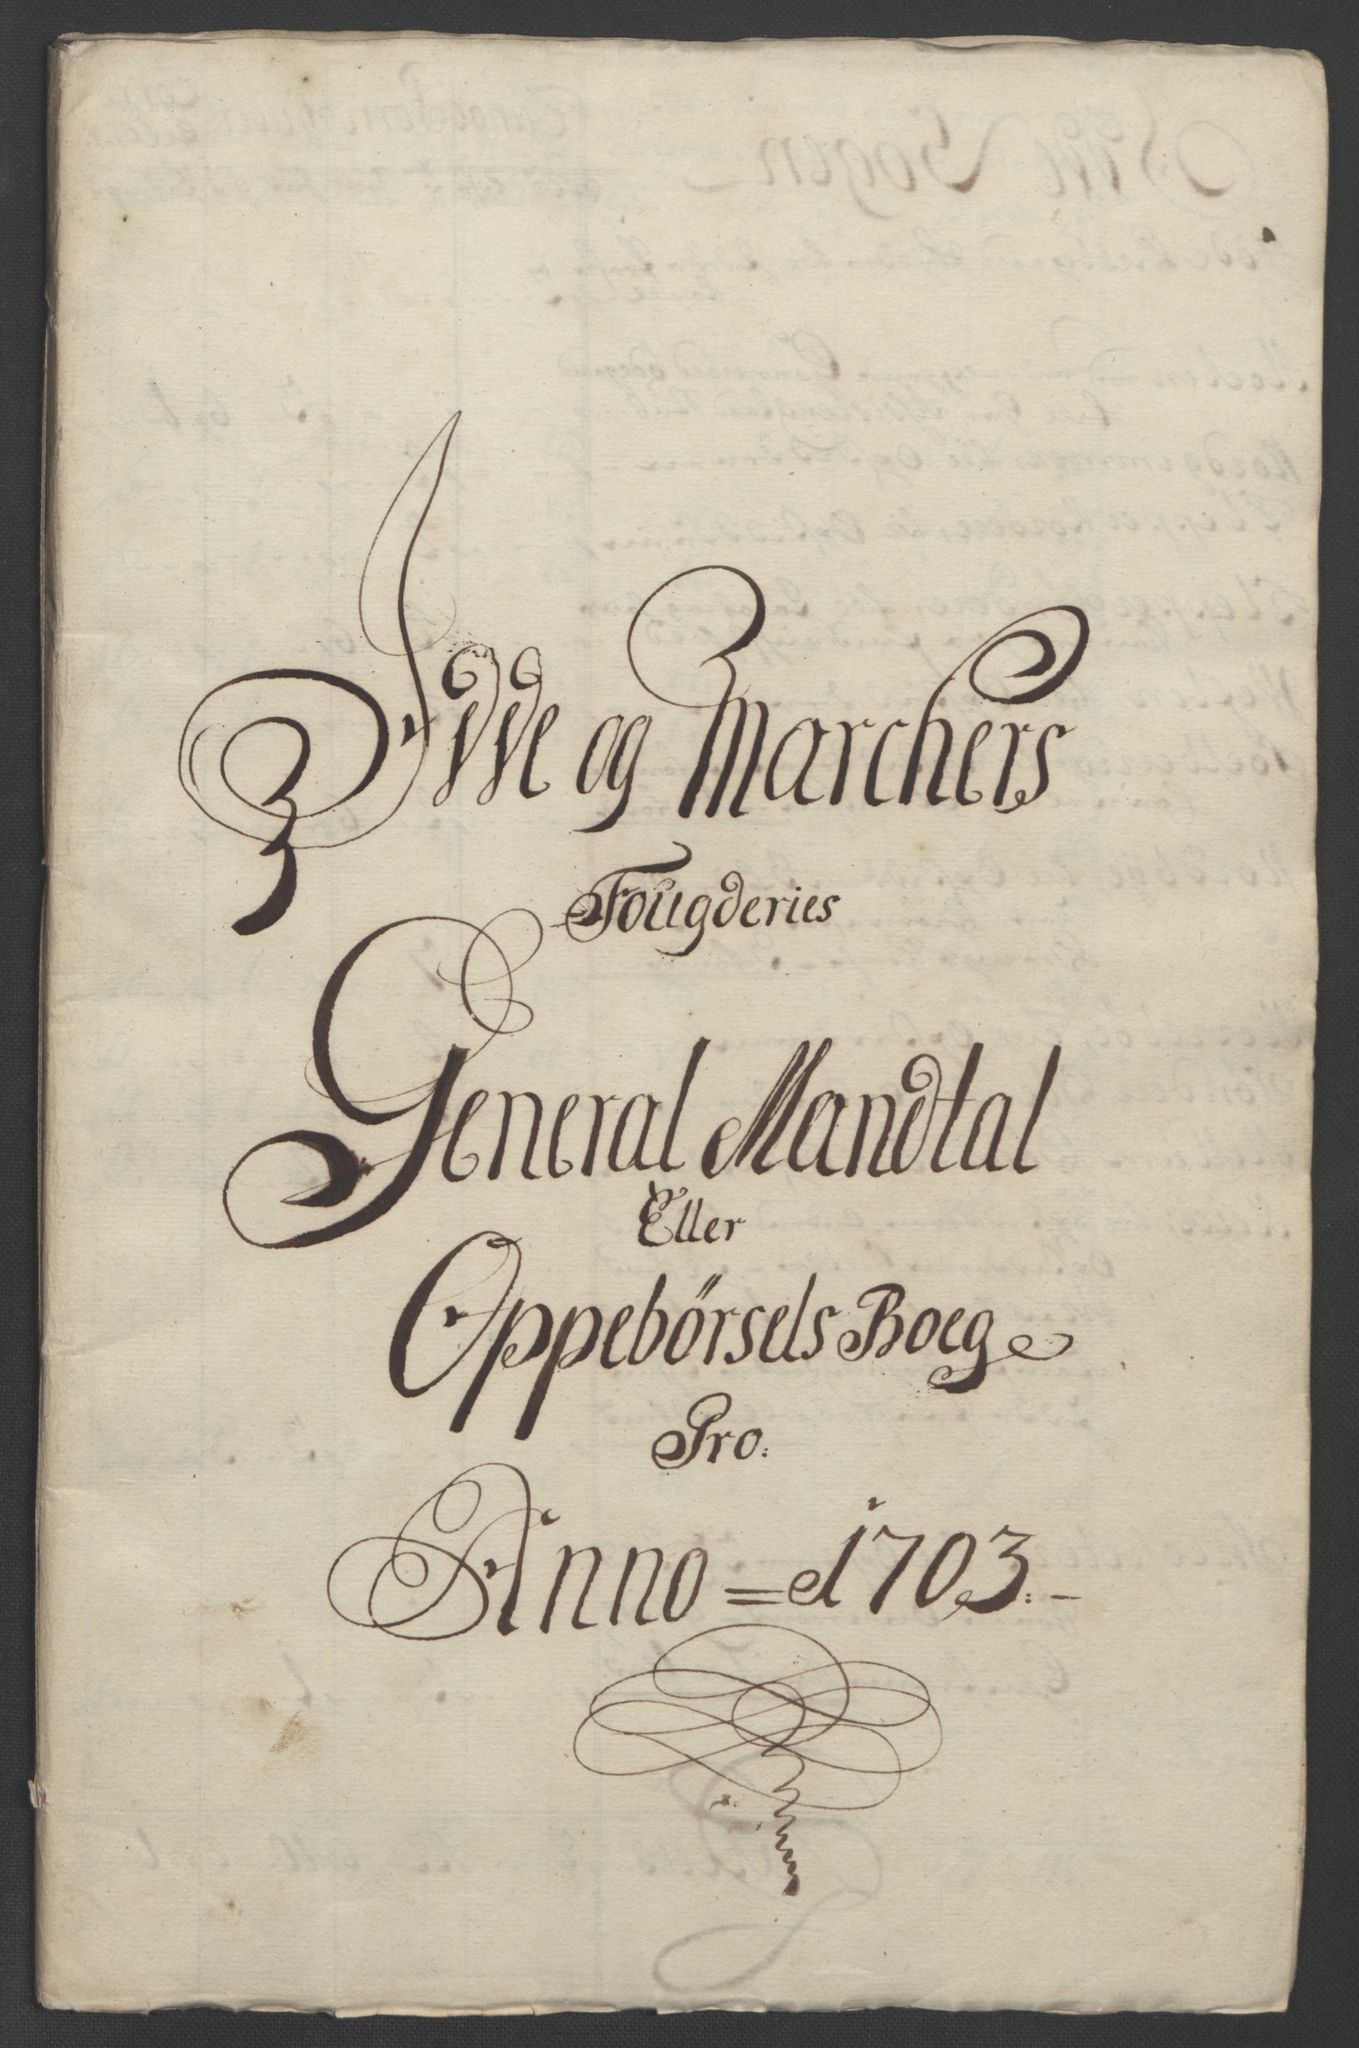 Idde og Marchers
Fougderies
General Mandtal
Eller
Oppebörsels Boeg
Pro.
Anno = 1703.